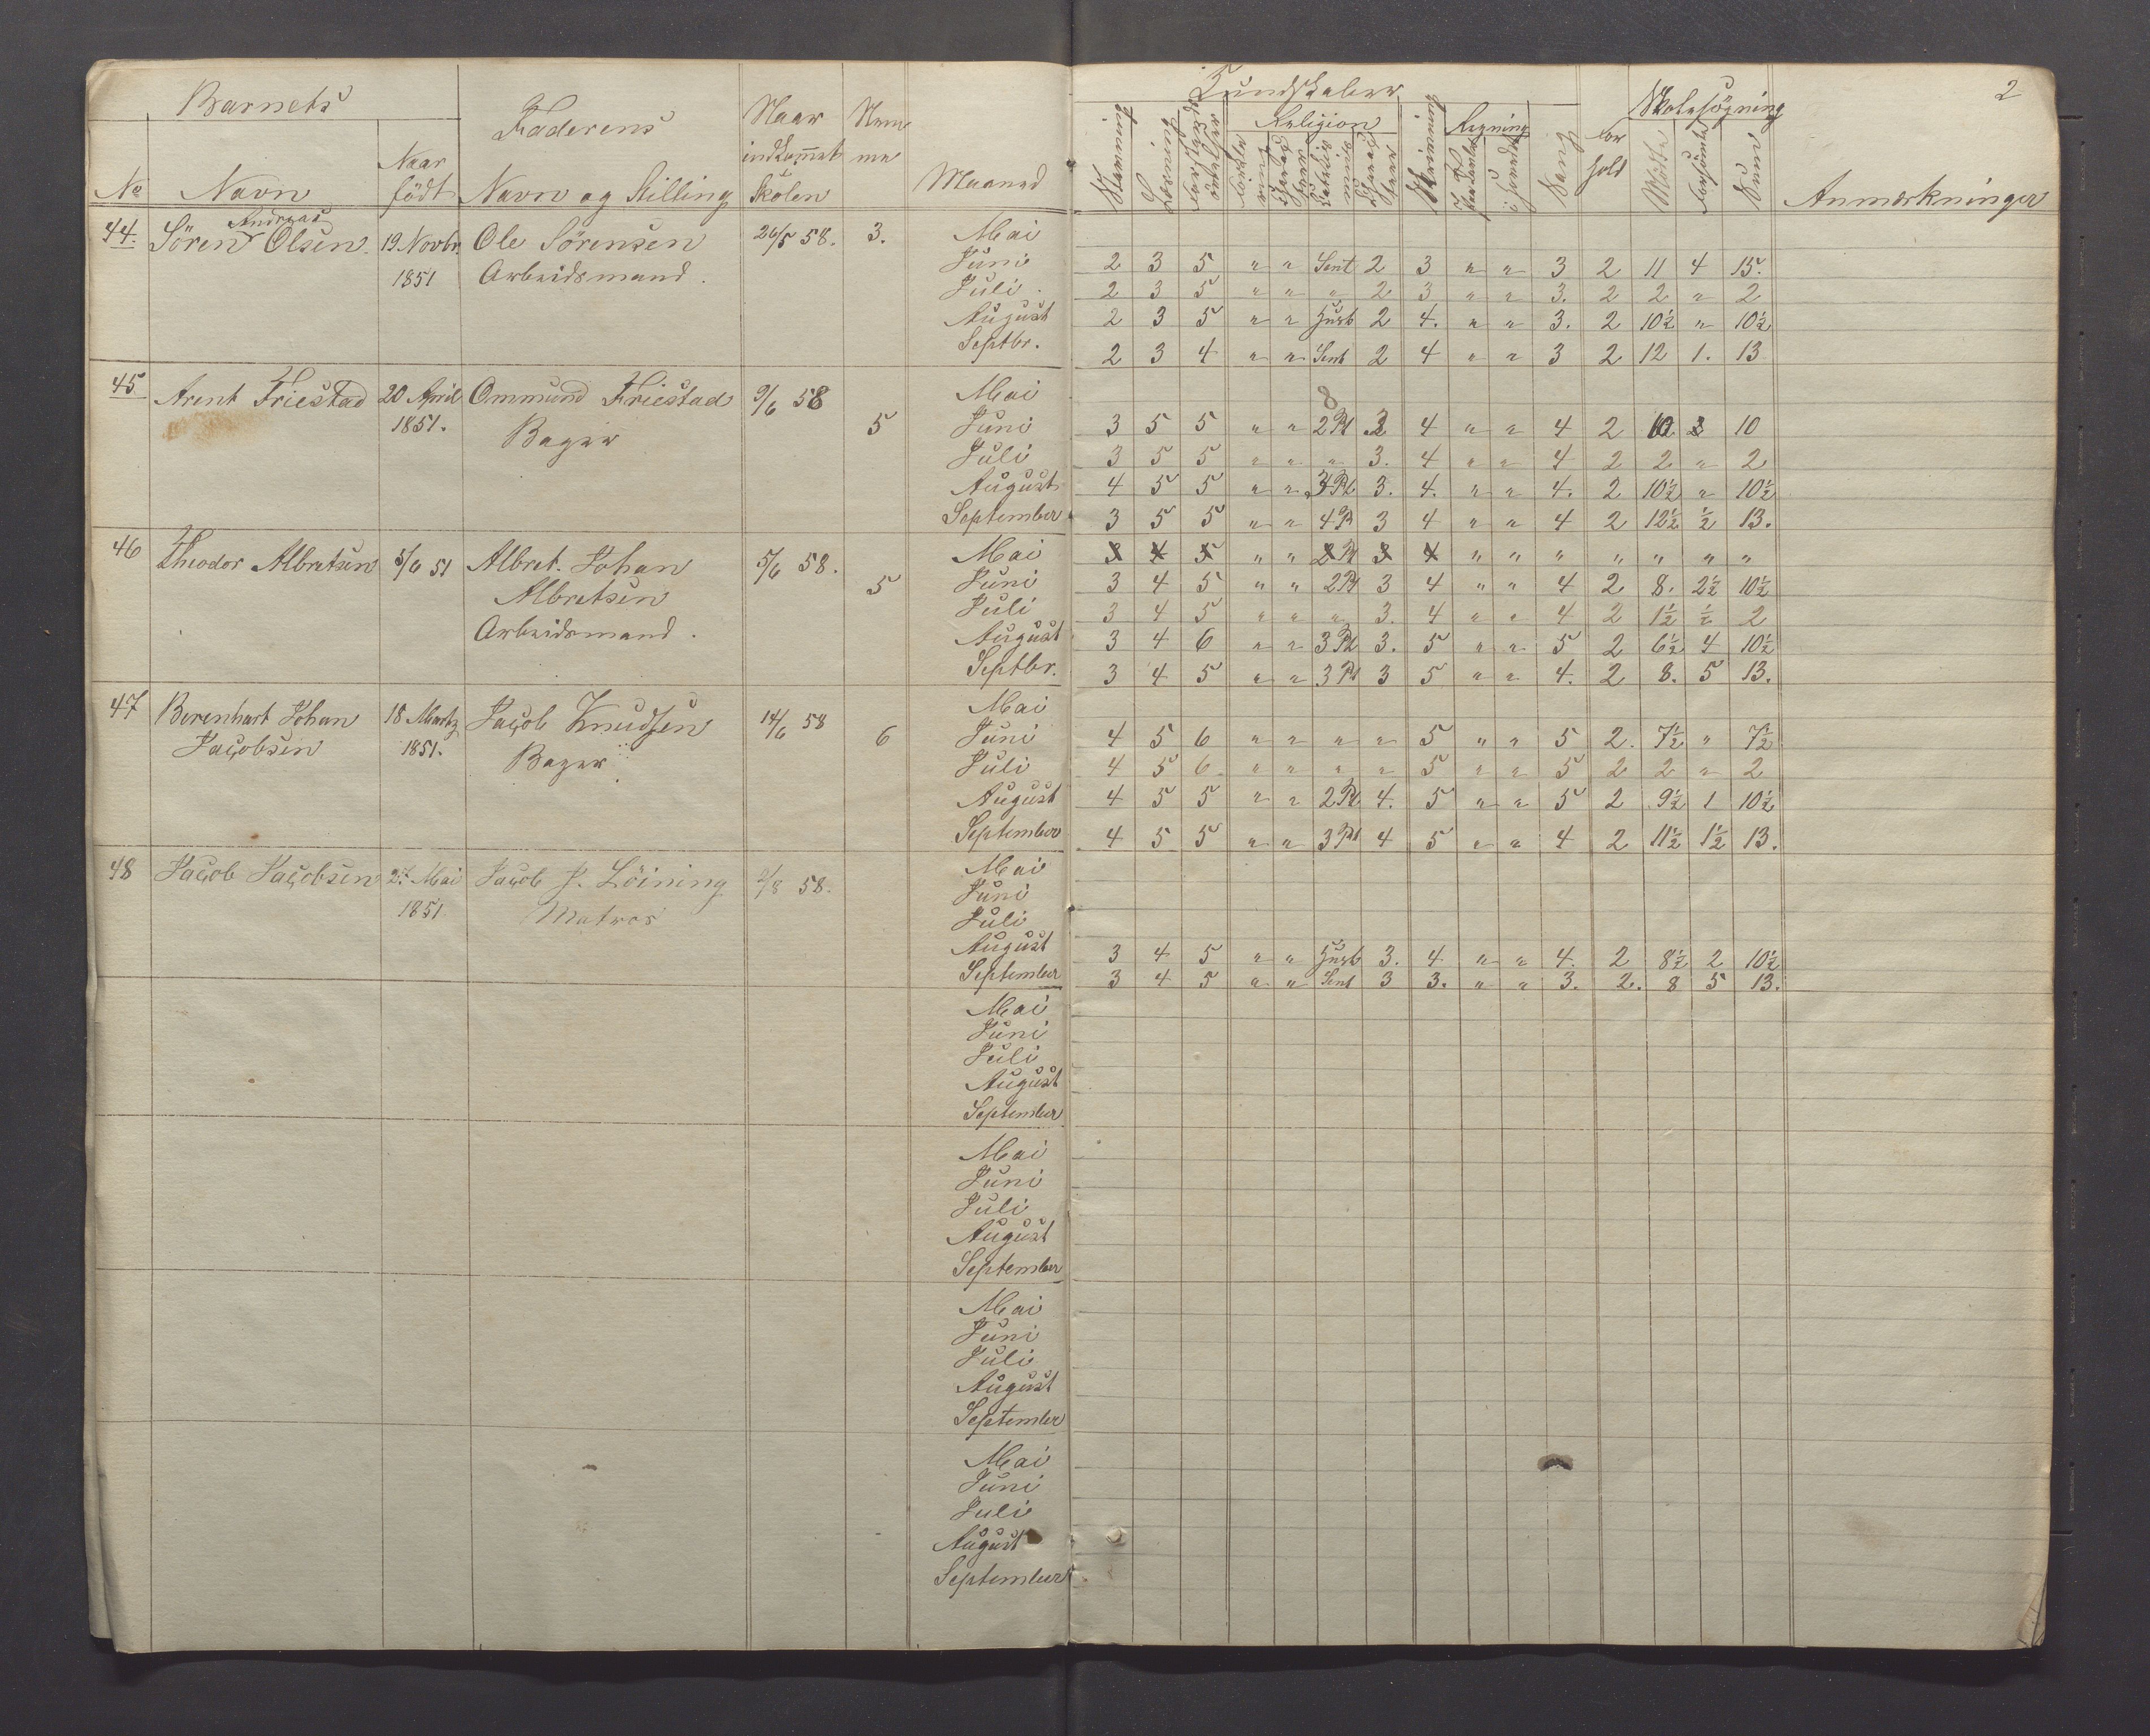 2
Barnets Faderens Naar indkommet Skolen Maaned Kundskaber Skolesøgning
Religion Regning
No Navn Naar født Navn og Stilling Stavning Skrivning Sang Forhold Mødte Forsømte Sum Anmærkninger
44. Sören Andreas Olsen. 19 Novbr. Ole Sörensen 26/5 58. 3. Mai
1851 Arbeidsmand.
Juni 2 3 5 " " Sent 2 3 " " 3 2 11 4 15.
Juli. 2 3 5 " " " 2 3 " " 3. 2 2 " 2
August 2 3 5 " " 2 4. " " 3. 2 10½ " 10½
Septbr. 2 3 4 " " Sent 2 4 " " 3 2 12 1. 13
45 Arent Friestad 20 April Ommund Friestad 9/6 58 5 Mai
1851. Bager
8
Juni 3 5 5 " " 2 Pt 4 " " 4 2 10 10
Juli 3 5 5 " " " 3. 4 " " 4 2 2 " 2
August 4 5 5 " " 3 Pt 3. 4. " " 4. 2 10½ " 10½
September 3 5 5 " " 4 Pt 3 4 " " 4 2 12½ ½ 13.
46 Theodor Albretsen 5/6 51 Albret. Johan 5/6 58. 5 Mai 3 4 5 " " 2 Pt 3 4 " " " " " " "
Albretsen
Arbeidsmand.
Juni 3 4 5 " " 2 Pt 3 4 " " 4 2 8. 2½ 10½
Juli 3 4 5 " " " 3. 4 " " 4 2 1½ ½ 2
August 3 4 6 " " 3 Pt 3. 5 " " 5 2 6½ 4 10½
Septbr. 3 4 5 " " 3 Pt 3 5 " " 4. 2 8. 5 13.
47 Berenhart Johan 18 Martz Jacob Knudsen 14/6 58 6 Mai
Jacobsen 1851. Bager
Juni 4 5 6 " " " " 5 " " 5 2. 7½ " 7½
Juli 4 5 6 " " " " 5 " " 5 2 2 " 2
August 4 5 5 " " 2 Pt 4. 5 " " 5 2 9½ 1 10½
September 4 5 5 " " 3 Pt 4 5 " " 4 2 11½ 1½ 13.
48 Jacob Jacobsen Mai Jacob J. Löining 58. Mai
1851 Matros
Juni
Juli
August 3 4 5 " " 3. 4 " " 4. 2 8½ 2 10½
September 3 4 5 " " Sent 3 3. " " 3. 2. 8 5 13.
Mai
Juni
Juli
August
September
Mai
Juni
Juli
August
September
Mai
Juni
Juli
August
September
Mai
Juni
Juli
August
September